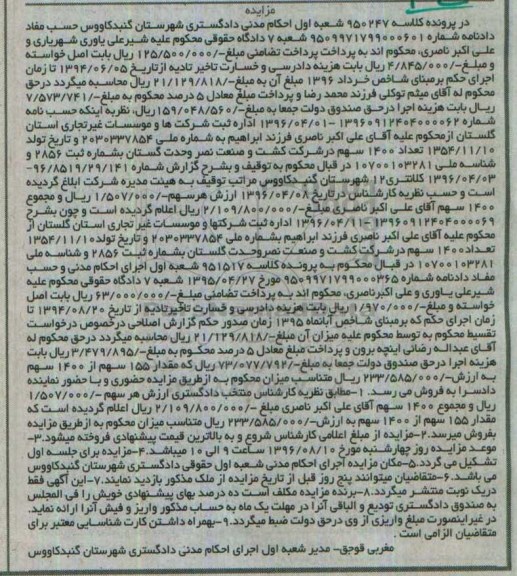 مزایده
در پرونده کلاسه ۹۵۰۲۴۷ شعبه اول احکام مدنی دادگستری شهرستان گنبدکاووس حسب مفاد
دادنامه شماره ۹۵۰۹۹۷۱۷۹۹۰۰۰۶۰۱ شعبه ۷ دادگاه حقوقی محکوم علیه شیرعلی یاوری شهریاری و
علی اکبر ناصری، محکوم اند به پرداخت پرداخت تضامنی مبلغ-/۱۲۵/۵۰۰/۰۰۰ ریال بابت اصل خواسته
و مبلغ-/۴/۸۴۵/۰۰۰ ریال بابت هزینه دادرسی و خسارت تاخیر تادیه ازتاریخ ۱۳۹۴/۰۶/۰۵ تا زمان
اجرای حکم برمبنای شاخص خرداد ۱۳۹۶ مبلغ آن به مبلغ-/۲۱/۱۲۹/۸۱۸ ریال محاسبه میگردد درحق
محکوم له آقای میثم توکلی فرزند محمد رضا و پرداخت مبلغ معادل ۵ درصد محکوم به مبلغ-/۷/۵۷۳/۷۴۱
ریال بابت هزینه اجرا درحق صندوق دولت جمعا به مبلغ-/۱۵۹/۰۴۸/۵۶۰ریال، نظریه اینکه حسب نامه
شماره ۱۳۹۶۰۹۱۲۴۰۴۰۰۰۰۶۲-۱۳۹۶/۰۴/۰۱ اداره ثبت شرکت ها و موسسات غیرتجاری استان
گلستان ازمحکوم علیه آقای علی اکبر ناصری فرزند ابراهیم به شماره ملی ۲۰۳۰۳۳۷۸۵۴ و تاریخ تولد
۱۳۵۴/۱۱/۱۰ تعداد ۱۴۰۰ سهم درشرکت کشت و صنعت نصر وحدت گستان بشماره ثبت ۲۸۵۶ و
شناسه ملی ۱۰۷۰۰۱۰۳۲۸۱ در قبال محکوم به توقیف و بشرح گزارش شماره ۹۶/۸۵۱۹/۲۹/۱۴۱-
۱۳۹۶/۰۴/۰۳ کلانتری۱۲ شهرستان گنبدکاووس مراتب توقیف به هیئت مدیره شرکت ابلاغ گردیده
است و حسب نظریه کارشناس درتاریخ ۱۳۹۶/۰۴/۰۸ ارزش هرسهم-/۱/۵۰۷/۰۰۰ ریال و مجموع
۱۴۰۰ سهم آقای علی اکبر ناصری مبلغ-/۲/۱۰۹/۸۰۰/۰۰۰ ریال اعلام گردیده است و چون بشرح
۱۳۹۶۰۹۱۲۴۰۴۰۰۰۰۶۹-۱۳۹۶/۰۴/۱۱ اداره ثبت شرکتها و موسسات غیر تجاری استان گلستان از
محکوم علیه آقای علی اکبر ناصری فرزند ابراهیم بشماره ملی ۲۰۳۰۳۳۷۸۵۴ و تاریخ تولد ۱۳۵۴/۱۱/۱۰
تعداد۱۴۰۰ سهم درشرکت کشت و صنعت نصروحدت گلستان بشماره ثبت ۲۸۵۶ و شناسه ملی
۱۰۷۰۰۱۰۳۲۸۱ در قبال محکوم به پرونده کلاسه ۹۵۱۵۱۷ شعبه اول اجرای احکام مدنی و حسب
مفاد دادنامه شماره ۹۵۰۹۹۷۱۷۹۹۰۰۰۳۶۵ مورخ ۱۳۹۵/۰۴/۲۷ شعبه ۷ دادگاه حقوقی محکوم علیه
شیرعلی یاوری و علی اکبرناصری، محکوم اند به پرداخت تضامنی مبلغ-/۶۳/۰۰۰/۰۰۰ ریال بابت اصل
خواسته و مبلغ-/۱/۹۷۰/۰۰۰ ریال بابت هزینه دادرسی و خسارت تاخیرتادیه از تاریخ ۱۳۹۴/۰۸/۲۰ تا
زمان اجرای حکم که برمبنای شاخص آبانماه ۱۳۹۵ زمان صدور حکم گزارش اصلاحی درخصوص درخواست
تقسیط محکوم به توسط محکوم علیه میزان آن مبلغ-/۲۱/۱۲۹/۸۱۸ ریال محاسبه میگردد درحق محکوم له
آقای عبداله رضائی اینچه برون و پرداخت مبلغ معادل ۵ درصد محکوم به مبلغ-/۳/۴۷۹/۸۹۵ ریال بابت
هزینه اجرا درحق صندوق دولت جمعا به مبلغ-/۷۳/۰۷۷/۷۹۲ ریال که مقدار ۱۵۵ سهم از ۱۴۰۰ سهم
به ارزش-/۲۳۳/۵۸۵/۰۰۰ ریال متناسب میزان محکوم به ازطریق مزایده حضوری و با حضور نماینده
دادسرا به فروش می رسد. ۱-مطابق نظریه کارشناس منتخب دادگستری ارزش هر سهم -/۱/۵۰۷/۰۰۰
ریال و مجموع ۱۴۰۰ سهم آقای علی اکبر ناصری مبلغ -/۲/۱۰۹/۸۰۰/۰۰۰ ریال اعلام گردیده است که
مقدار ۱۵۵ سهم از ۱۴۰۰ سهم به ارزش-/۲۳۳/۵۸۵/۰۰۰ ریال متناسب میزان محکوم به ازطریق مزایده
بفروش میرسد.۲-مزایده از مبلغ اعلامی کارشناس شروع و به بالاترین قیمت پیشنهادی فروخته میشود.۳-
موعد مزایده روز چهارشنبه مورخ ۱۳۹۶/۰۸/۱۰ ساعت ۹ الی ۱۰ میباشد.۴-مزایده برای جلسه اول
تشکیل می گردد.۵-مکان مزایده اجرای احکام مدنی شعبه اول حقوقی دادگستری شهرستان گنبدکاووس
می باشد.۶-متقاضیان میتوانند پنج روز قبل از تاریخ مزایده از ملک مذکور بازدید نمایند.۷-این آگهی فقط
دریک نوبت منتشر میگردد.۸-برنده مزایده مکلف است ده درصد بهای پیشنهادی خویش را فی المجلس
به صندوق دادگستری تودیع و الباقی آنرا در مهلت یک ماه به حساب مذکور واریز و فیش آنرا ارائه نماید.
در غیراینصورت مبلغ واریزی از وی درحق دولت ضبط میگردد.۹-بهمراه داشتن کارت شناسایی معتبر برای
متقاضیان الزامی است.
مغربی قوجق- مدیر شعبه اول اجرای احکام مدنی دادگستری شهرستان گنبدکاووس